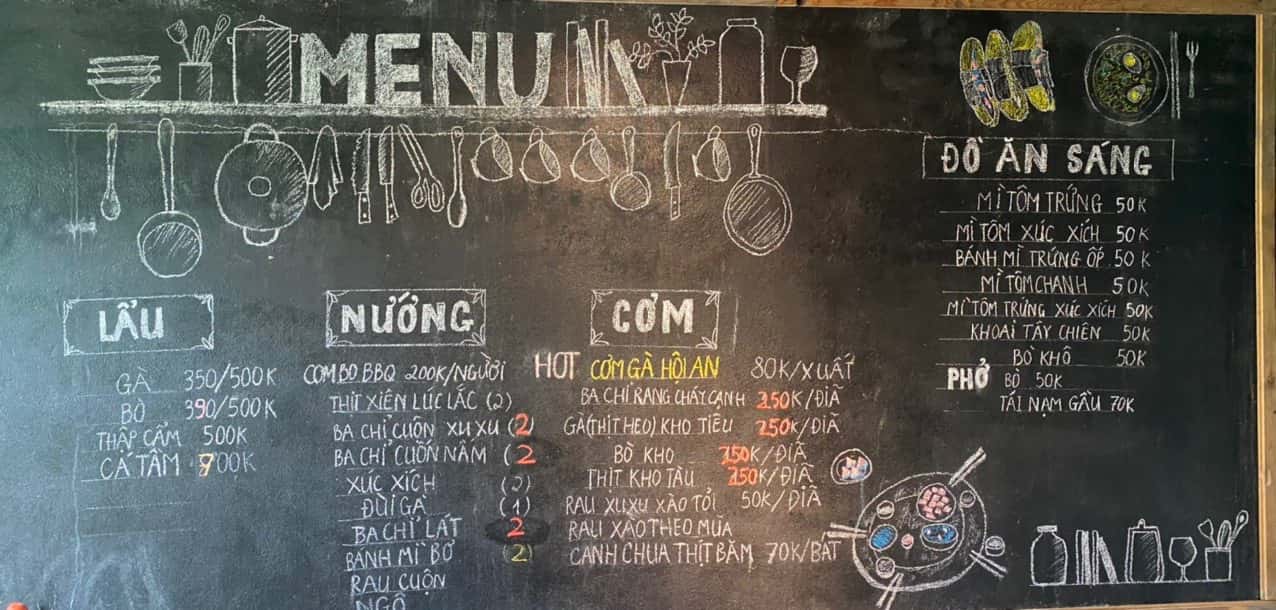 MENU
ĐỒ ĂN SÁNG
MÌ TÔM TRỨNG 50K
MÌ TÔM XÚC XÍCH 50K
BÁNH MÌ TRỨNG ỐP 50K
MÌ TÔM CHANH 50K
MÌ TÔM TRỨNG XÚC XÍCH 50K
KHOAI TÂY CHIÊN 50K
BÒ KHÔ 50K
PHỞ BÒ 50K
TÁI NẠM GẦU 70K
LẨU
GÀ 350/500K
BÒ 390/500K
THẬP CẨM 500K
CÁ TẦM 700K
NƯỚNG
COMBO BBQ 200K/NGƯỜI
THỊT XIÊN LÚC LẮC (2)
BA CHỈ CUỘN XU XU (2)
BA CHỈ CUỐN NẤM (2
XÚC XÍCH (2)
ĐÙI GÀ (1)
BA CHỈ LÁT 2
BÁNH MÌ BƠ (2)
RAU CUỘN
NGÔ
CƠM
HOT CƠM GÀ HỘI AN 80K/XUẤT
BA CHỈ RANG CHÁY CẠNH 250K/ĐĨA
GÀ(THỊT HEO) KHO TIÊU 250K/ĐĨA
BÒ KHO 250K/ĐĨA
THỊT KHO TÀU 250K/ĐĨA
RAU XU XU XÀO TỎI 50K/ĐĨA
RAU XÀO THEO MÙA
CANH CHUA THỊT BẰM 70K/BÁT